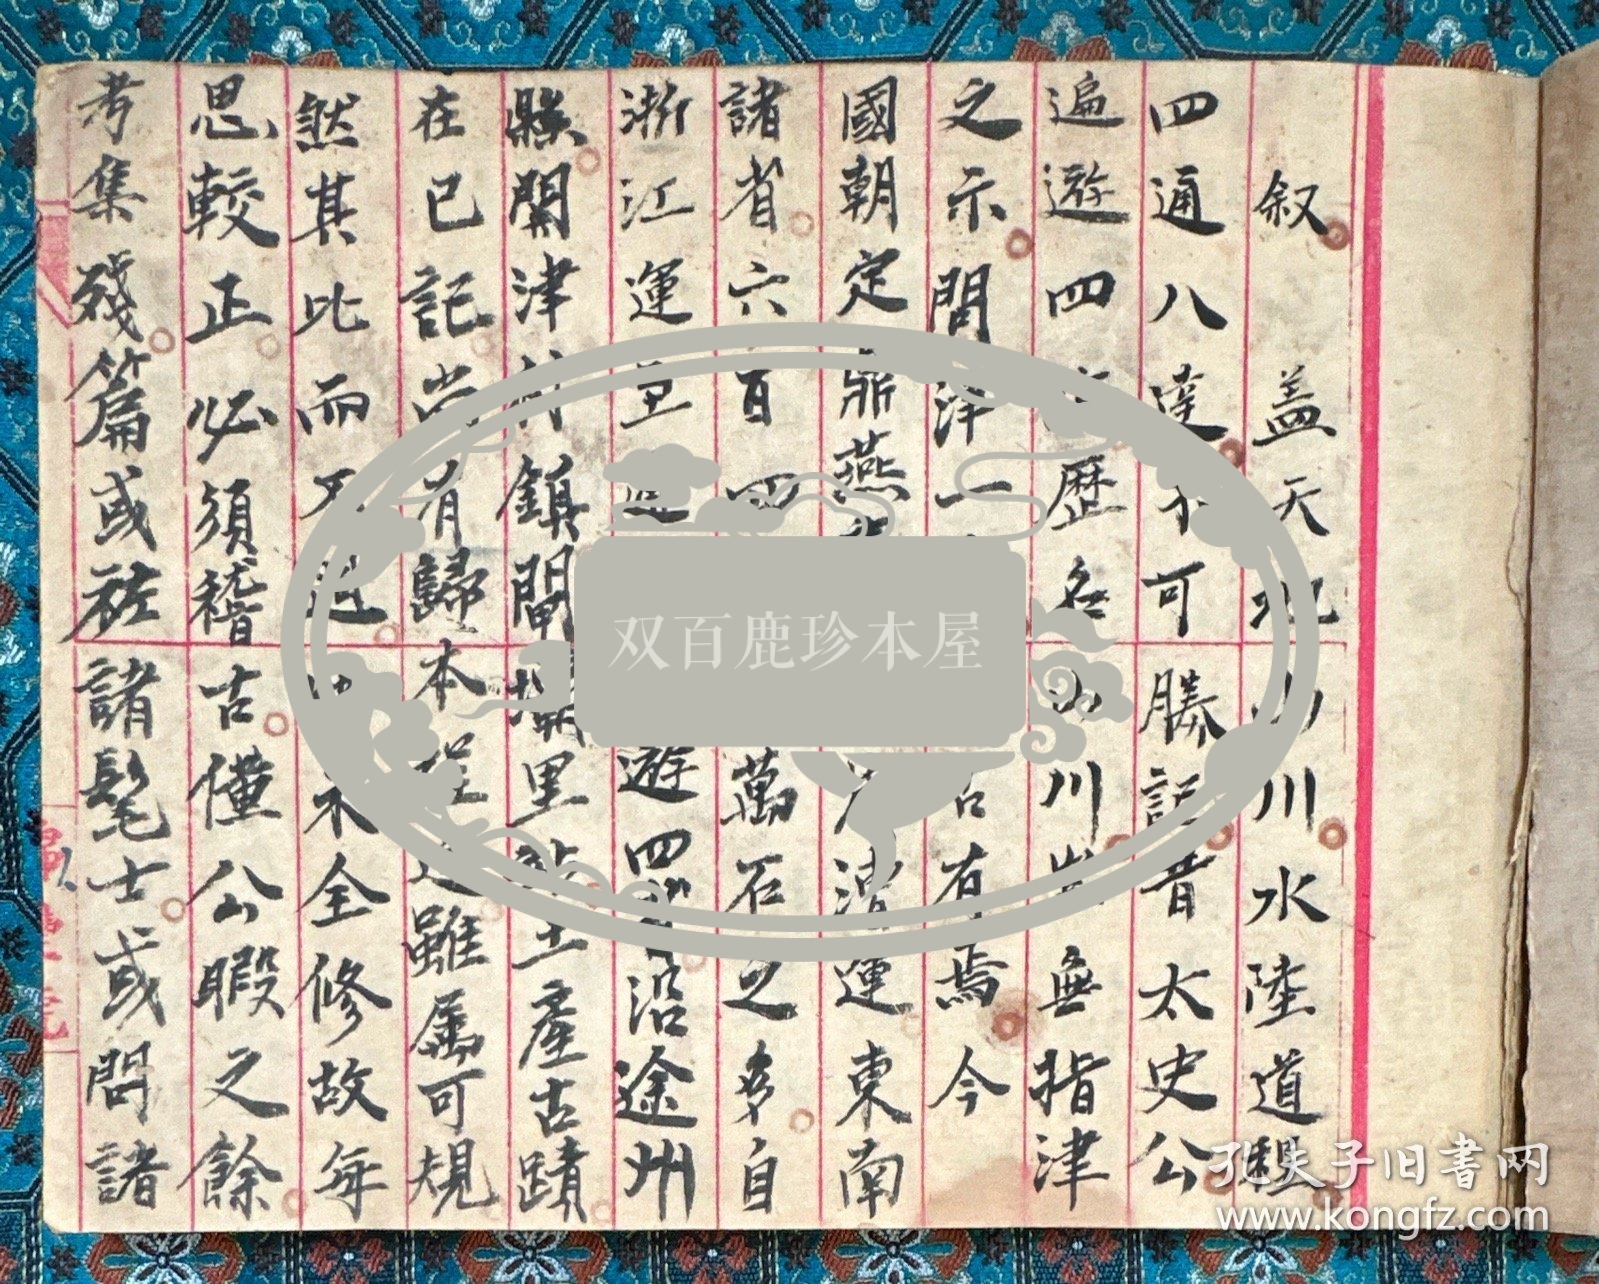 叙 盖天地山川水陸道程
四通八達不可勝記昔太史公
遍遊四歴名山川無指津
之示問津一古有焉今
國朝定鼎燕漕運東南
諸省六百四萬石之多自
浙江運遊四沿途州
縣關津村鎮閘壩里土產古蹟
在已記尚有歸本雖属可規
然其比而不全修故每
思較正必須稽古僅公暇之餘
考集殘篇或於諸髦士或問諸
双百鹿珍本屋
孔夫子旧書网
www.kongfz.com